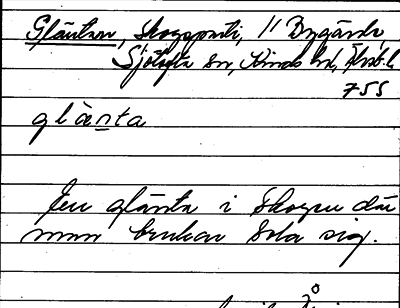 Gläntan, skogsparti, 11 Bygärde
Sjötofta sn, Kinds hd, Älvsb. l.
755
glànta
En glänta i skogen där
man brukar sola sig.